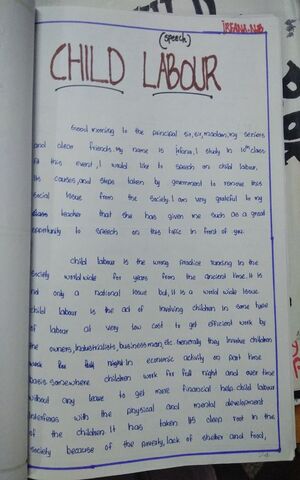 IRFANA.N.B
(speech)
CHILD LABOUR
Good morning to the principal sir, sir, madam, my seniors
and dear friends. My name is Irfana, I study in 10th class
At this event, I would like to speech on child labour.
Its causes, and steps taken by government to remove this
social issue from the society. I am very grateful to my
class teacher that she has given me such as a great
opportunity to speech on this topic in front of you.
child labour is the wrong practice running in the
society worldwide for years from the ancient time. It is
not only a national issue but, it is a world wide issue.
child labour is the act of involving children in some type
of labour at very low cost to get efficient work by
the owners, industrialists, business man, etc. Generally they involve children
in economic activity on part time
basis somewhere children work for full night and over time
without any leave to get more financial help. child labour
interferes with the physical and mental development
of the children. It has taken its deep root in the
society because of the poverty, lack of shelter and food,